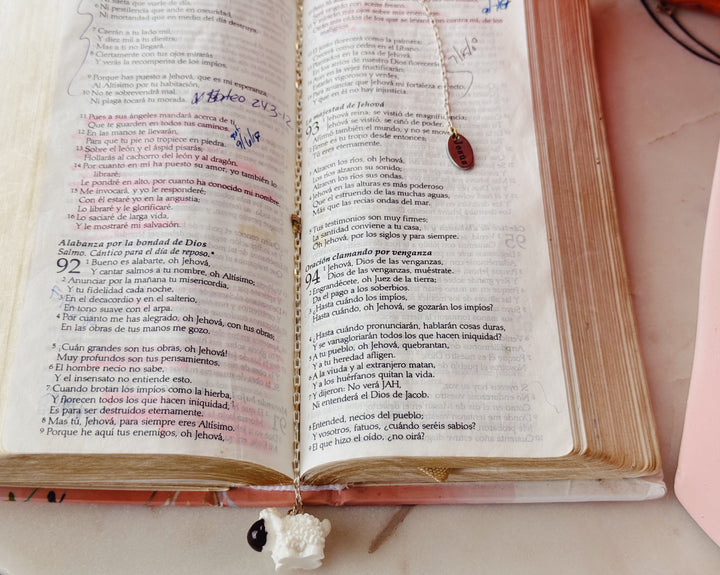 saeta que vuele de día,
6 Ni pestilencia que ande en oscuridad,
Ni mortandad que en medio del día destruya.
7 Caerán a tu lado mil,
Y diez mil a tu diestra;
Mas a ti no llegará.
8 Ciertamente con tus ojos mirarás
Y verás la recompensa de los impíos.
9 Porque has puesto a Jehová, que es mi esperanza,
Al Altísimo por tu habitación,
10 No te sobrevendrá mal,
Ni plaga tocará tu morada.
Mateo 24:3-12
11 Pues a sus ángeles mandará acerca de ti,
Que te guarden en todos tus caminos.
12 En las manos te llevarán,
Para que tu pie no tropiece en piedra.
9/6/18
13 Sobre el león y el áspid pisarás;
Hollarás al cachorro del león y al dragón.
14 Por cuanto en mí ha puesto su amor, yo también lo
libraré;
Le pondré en alto, por cuanto ha conocido mi nombre.
15 Me invocará, y yo le responderé;
Con él estaré yo en la angustia;
Lo libraré y le glorificaré.
16 Lo saciaré de larga vida,
Y le mostraré mi salvación.
Alabanza por la bondad de Dios
Salmo. Cántico para el día de reposo.*
92 1 Bueno es alabarte, oh Jehová,
Y cantar salmos a tu nombre, oh Altísimo;
2 Anunciar por la mañana tu misericordia,
Y tu fidelidad cada noche,
3 En el decacordio y en el salterio,
En tono suave con el arpa.
4 Por cuanto me has alegrado, oh Jehová, con tus obras;
En las obras de tus manos me gozo.
5 ¡Cuán grandes son tus obras, oh Jehová!
Muy profundos son tus pensamientos.
6 El hombre necio no sabe,
Y el insensato no entiende esto.
7 Cuando brotan los impíos como la hierba,
Y florecen todos los que hacen iniquidad,
Es para ser destruidos eternamente.
8 Mas tú, Jehová, para siempre eres Altísimo.
9 Porque he aquí tus enemigos, oh Jehová,
como la palmera;
como cedro en el Líbano.
en la casa de Jehová,
de nuestro Dios florecerán.
Aun en la vejez fructificarán;
Estarán vigorosos y verdes,
anunciar que Jehová mi fortaleza es recto,
Y que en él no hay injusticia.
La majestad de Jehová
93 Jehová reina; se vistió de magnificencia;
Jehová se vistió, se ciñó de poder.
Afirmó también el mundo, y no se moverá.
Firme es tu trono desde entonces;
Tú eres eternamente.
3 Alzaron los ríos, oh Jehová,
Los ríos alzaron su sonido;
Alzaron los ríos sus ondas.
4 Jehová en las alturas es más poderoso
Que el estruendo de las muchas aguas,
Más que las recias ondas del mar.
5 Tus testimonios son muy firmes;
La santidad conviene a tu casa,
Oh Jehová, por los siglos y para siempre.
Oración clamando por venganza
94 1 Jehová, Dios de las venganzas,
Dios de las venganzas, muéstrate.
2 Engrandécete, oh Juez de la tierra;
Da el pago a los soberbios.
3 ¿Hasta cuándo los impíos,
Hasta cuándo, oh Jehová, se gozarán los impíos?
4 ¿Hasta cuándo pronunciarán, hablarán cosas duras,
Y se vanagloriarán todos los que hacen iniquidad?
5 A tu pueblo, oh Jehová, quebrantan,
Y a tu heredad afligen.
6 A la viuda y al extranjero matan,
Y a los huérfanos quitan la vida.
7 Y dijeron: No verá JAH,
Ni entenderá el Dios de Jacob.
8 Entended, necios del pueblo;
Y vosotros, fatuos, ¿cuándo seréis sabios?
9 El que hizo el oído, ¿no oirá?